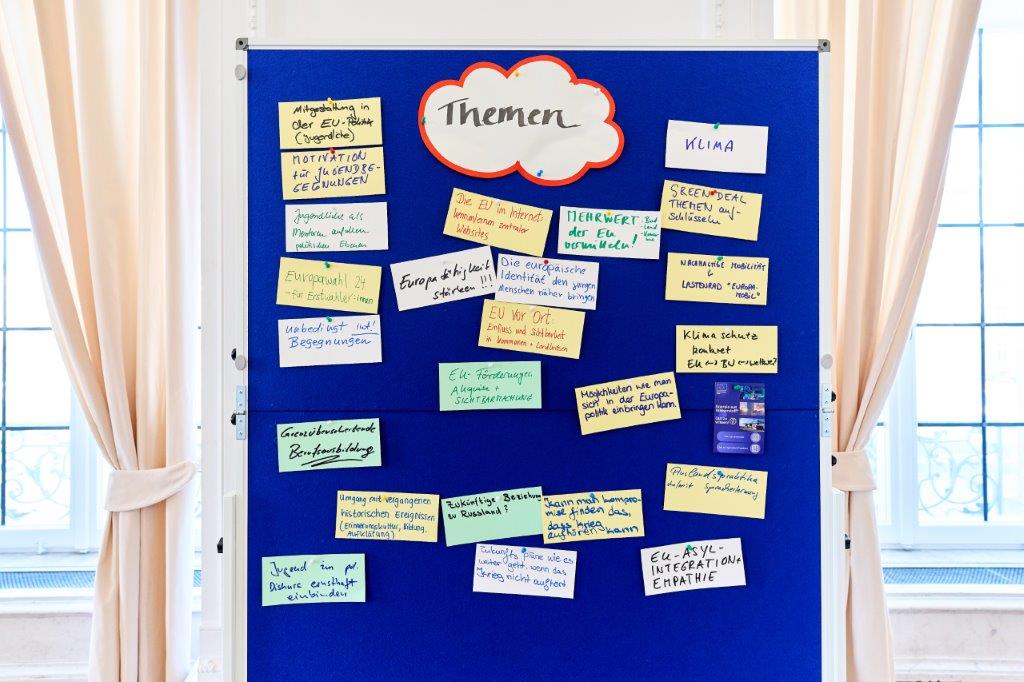 Themen
Mitgestaltung in
der EU-Politik
(Jugendliche)
MOTIVATION
für JUGENDBE-
GEGNUNGEN
Jugendliche als
Mentoren auf allen
politischen Ebenen
Europawahl 24
- für Erstwähler=innen
unbedingt int!
Begegnungen
Die EU im Internet
kennenlernen zentraler
Websites
MEHRWERT
der EU
vermitteln!
- Bund
- Land
- Kommune
Europafähigkeit
stärken !!!
Die europäische
Identität den jungen
Menschen näher bringen
EU vor Ort:
Einfluss und Sichtbarkeit
in Kommunen + Landkreisen
EU-Förderungen,
Akquise +
SICHTBARMACHUNG
Möglichkeiten wie man
sich in der Europa-
politik einbringen kann.
KLIMA
GREEN DEAL
THEMEN auf-
schlüsseln
NACHHALTIGE MOBILITÄT
LASTENRAD "EUROPA-
MOBIL"
Klimaschutz
konkret
EU <-> BW <-> weltweit?
Grenzüberschreitende
Berufsausbildung
Auslandspraktika
damit Spracherlernung
Umgang mit vergangenen
historischen Ereignissen
(Erinnerungskultur, Bildung,
Aufklärung)
Zukünftige Beziehung
zu Russland?
Kann man kompro-
mise finden das,
dass krieg
aufhören kann
Zukunfts pläne wie es
weiter geht, wenn das
Krieg nicht aufhört
EU-ASYL-
INTEGRATION+
EMPATHIE
Jugend im pol.
Diskurs ernsthaft
einbinden